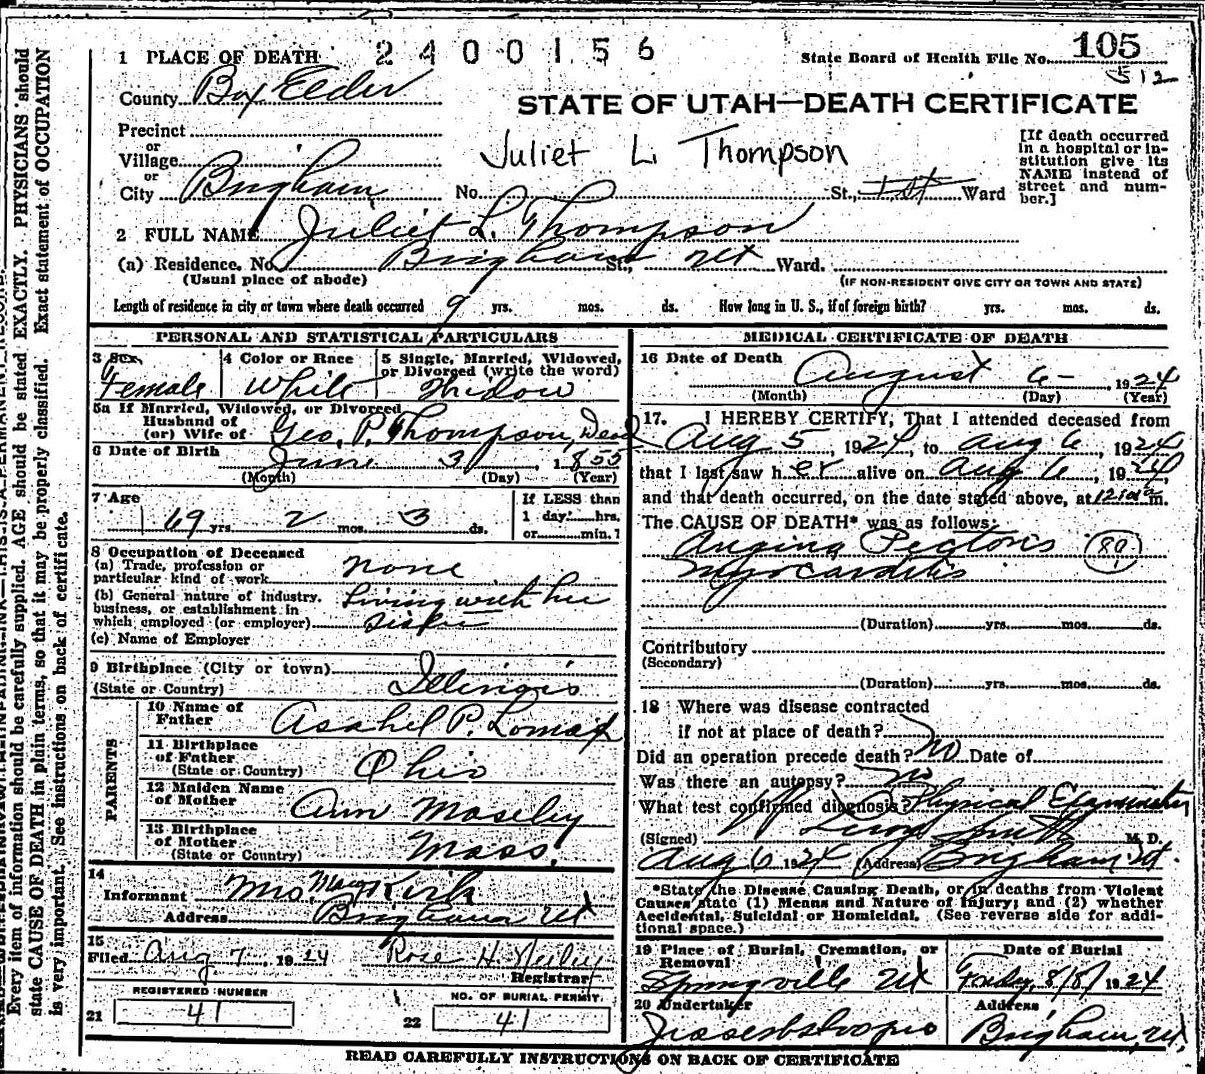 2400156
1 PLACE OF DEATH
State Board of Health File No. 105
512
County Box Elder
STATE OF UTAH—DEATH CERTIFICATE
Precinct
or
Village
or
City Brigham
Juliet L Thompson
No. St., Ward
[If death occurred in a hospital or institution give its NAME instead of street and number.]
2 FULL NAME Juliet L. Thompson
(a) Residence. No. Brigham St., Ut Ward.
(Usual place of abode)
(IF NON-RESIDENT GIVE CITY OR TOWN AND STATE)
Length of residence in city or town where death occurred 9 yrs. mos. ds. How long in U. S., if of foreign birth? yrs. mos. ds.
PERSONAL AND STATISTICAL PARTICULARS
3 Sex Female
4 Color or Race White
5 Single, Married, Widowed, or Divorced (write the word) Widow
5a If Married, Widowed, or Divorced
Husband of
(or) Wife of Geo. P. Thompson, Dead
6 Date of Birth June 3, 1855
(Month) (Day) (Year)
7 Age 69 yrs 2 mos. 3 ds.
If LESS than
1 day hrs.
or min.
8 Occupation of Deceased
(a) Trade, profession or
particular kind of work none
(b) General nature of industry,
business, or establishment in
which employed (or employer) Living with her sister
(c) Name of Employer
9 Birthplace (City or town)
(State or Country) Illinois
PARENTS
10 Name of Father Asahel P. Lomax
11 Birthplace of Father
(State or Country) Ohio
12 Maiden Name of Mother Ann Moseley
13 Birthplace of Mother
(State or Country) Mass.
14
Informant Mrs. Mary Kirk
Address Brigham Ut
15
Filed Aug 7 1924 Rose H. Neeley
Registrar
REGISTERED NUMBER
21 41
NO. OF BURIAL PERMIT.
22 41
MEDICAL CERTIFICATE OF DEATH
16 Date of Death August 6- , 1924
(Month) (Day) (Year)
17. I HEREBY CERTIFY, That I attended deceased from
Aug 5, 1924, to Aug 6, 1924
that I last saw her alive on Aug 6, 1924
and that death occurred, on the date stated above, at m.
The CAUSE OF DEATH* was as follows:
Angina Pectoris 89
Myocarditis
(Duration) yrs. mos. ds.
Contributory
(Secondary)
(Duration) yrs. mos. ds.
18 Where was disease contracted
if not at place of death?
Did an operation precede death? No Date of
Was there an autopsy? no
What test confirmed diagnosis? Physical Examination
(Signed) Leroy Smith M. D.
Aug 6 1924 (Address) Brigham, Ut.
*State the Disease Causing Death, or in deaths from Violent
Causes state (1) Means and Nature of Injury; and (2) whether
Accidental, Suicidal or Homicidal. (See reverse side for addi-
tional space.)
19 Place of Burial, Cremation, or Removal Springville Ut
Date of Burial Friday, 8/8/ 1924
20 Undertaker
Address Brigham, Ut.
READ CAREFULLY INSTRUCTIONS ON BACK OF CERTIFICATE
Every item of information should be carefully supplied. AGE should be stated EXACTLY. PHYSICIANS should
state CAUSE OF DEATH in plain terms, so that it may be properly classified. Exact statement of OCCUPATION
is very important. See instructions on back of certificate.